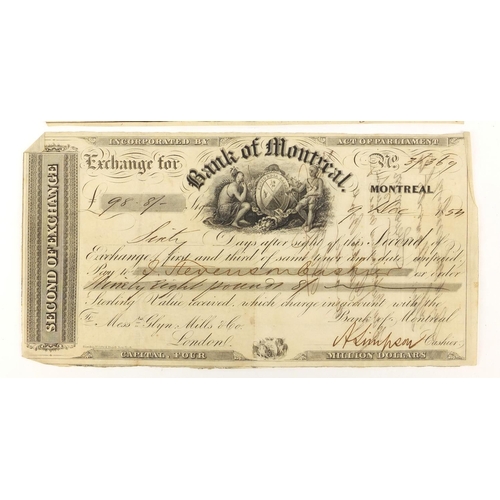 SECOND OF EXCHANGE
INCORPORATED BY ACT OF PARLIAMENT
Exchange for Bank of Montreal. No.
£ 98-8/- MONTREAL
9 Dec 185
Sixty Days after sight of this Second of
Exchange, first and third of same tenor and date unpaid
Pay to J. Stevenson Cashier or order
Ninety eight pounds 8/-
Sterling Value received, which charge in account with the
To Messrs. Glyn Mills & Co. Bank of Montreal
London. A Simpson Cashier
CAPITAL, FOUR MILLION DOLLARS